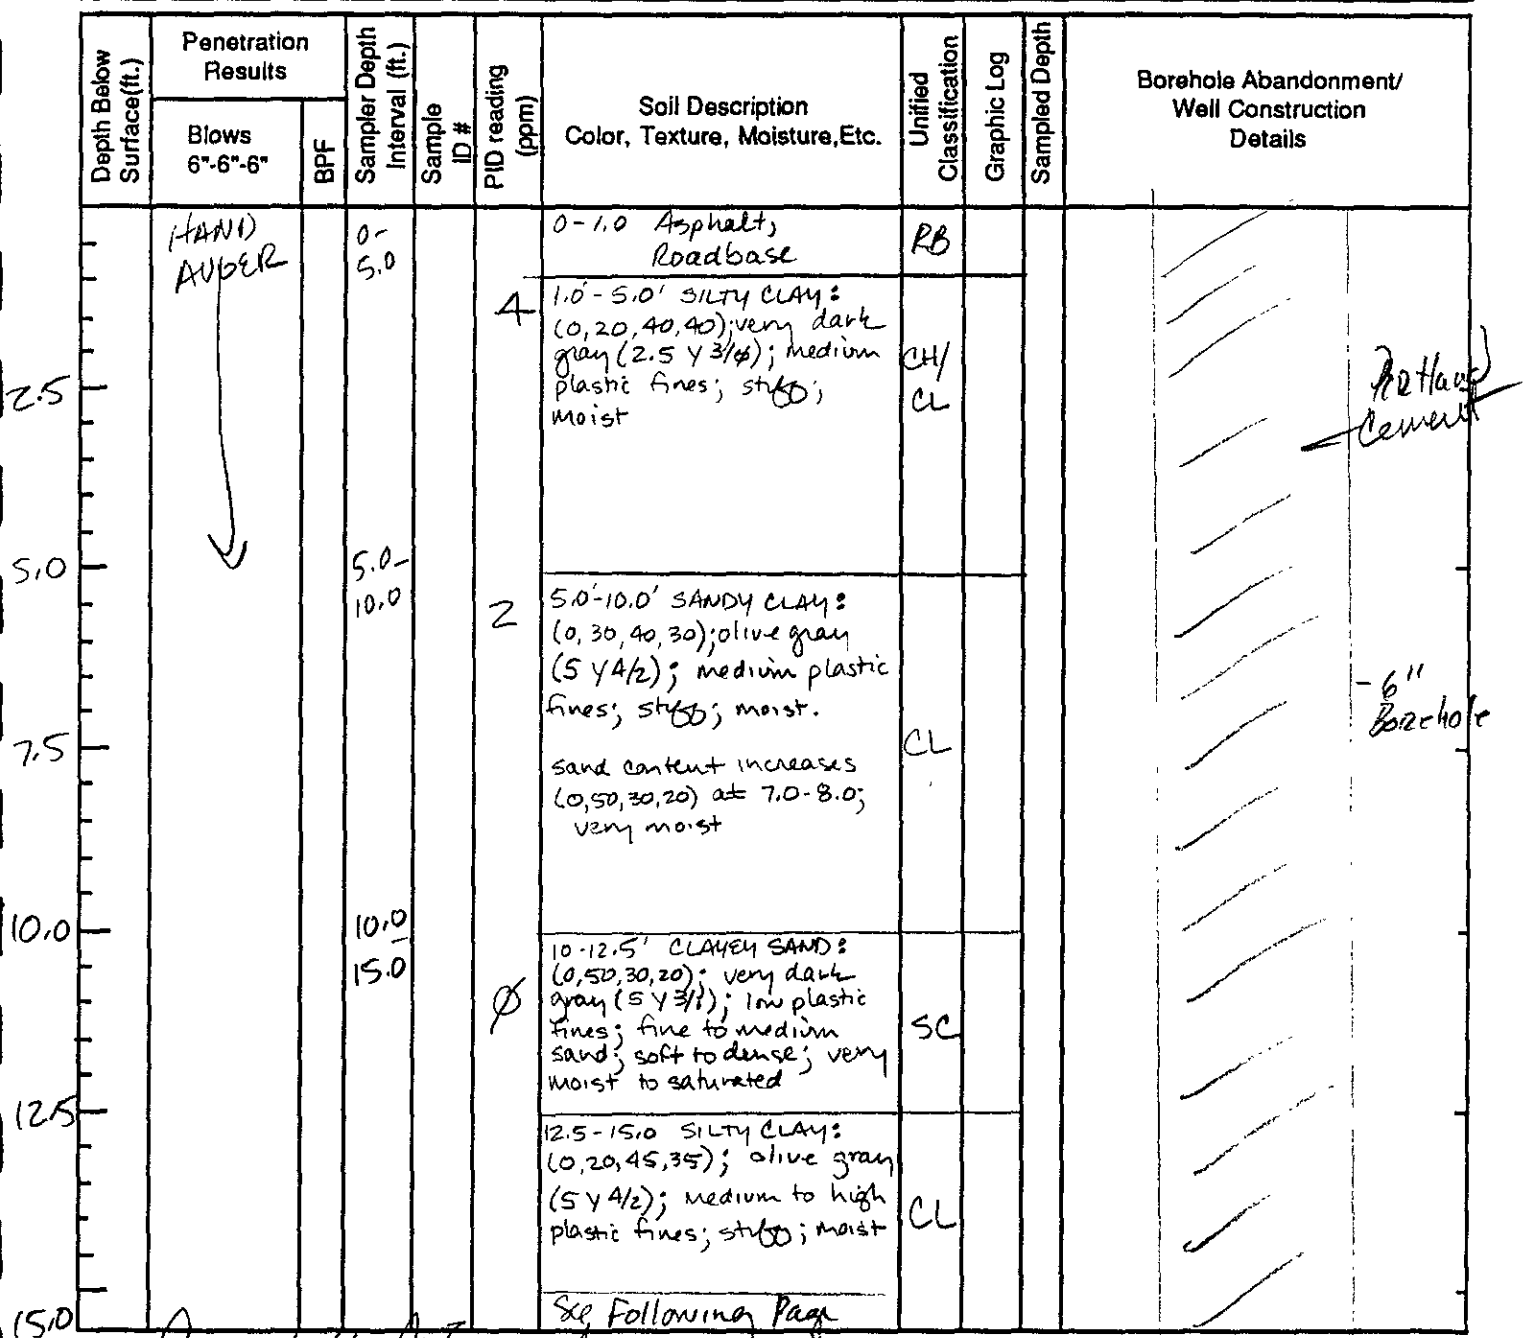 Depth Below
Surface(ft.)
Penetration
Results
Blows
6"-6"-6"
BPF
Sampler Depth
Interval (ft.)
Sample
ID #
PID reading
(ppm)
Soil Description
Color, Texture, Moisture,Etc.
Unified
Classification
Graphic Log
Sampled Depth
Borehole Abandonment/
Well Construction
Details
HAND
AUGER
0-
5.0
0-1.0 Asphalt,
Roadbase
RB
4
1.0'-5.0' SILTY CLAY:
(0,20,40,40); very dark
gray (2.5 Y 3/0); medium
plastic fines; stiff;
moist
CH/
CL
2.5
Portland
Cement
5.0
5.0-
10.0
2
5.0'-10.0' SANDY CLAY:
(0,30,40,30); olive gray
(5 Y 4/2); medium plastic
fines; stiff; moist.
sand content increases
(0,50,30,20) at 7.0-8.0;
very moist
CL
7.5
- 6"
Borehole
10.0
10.0
-
15.0
Ø
10-12.5' CLAYEY SAND:
(0,50,30,20); very dark
gray (5 Y 3/1); low plastic
fines; fine to medium
sand; soft to dense; very
moist to saturated
SC
12.5
12.5-15.0 SILTY CLAY:
(0,20,45,35); olive gray
(5 Y 4/2); medium to high
plastic fines; stiff; moist
CL
15.0
See Following Page